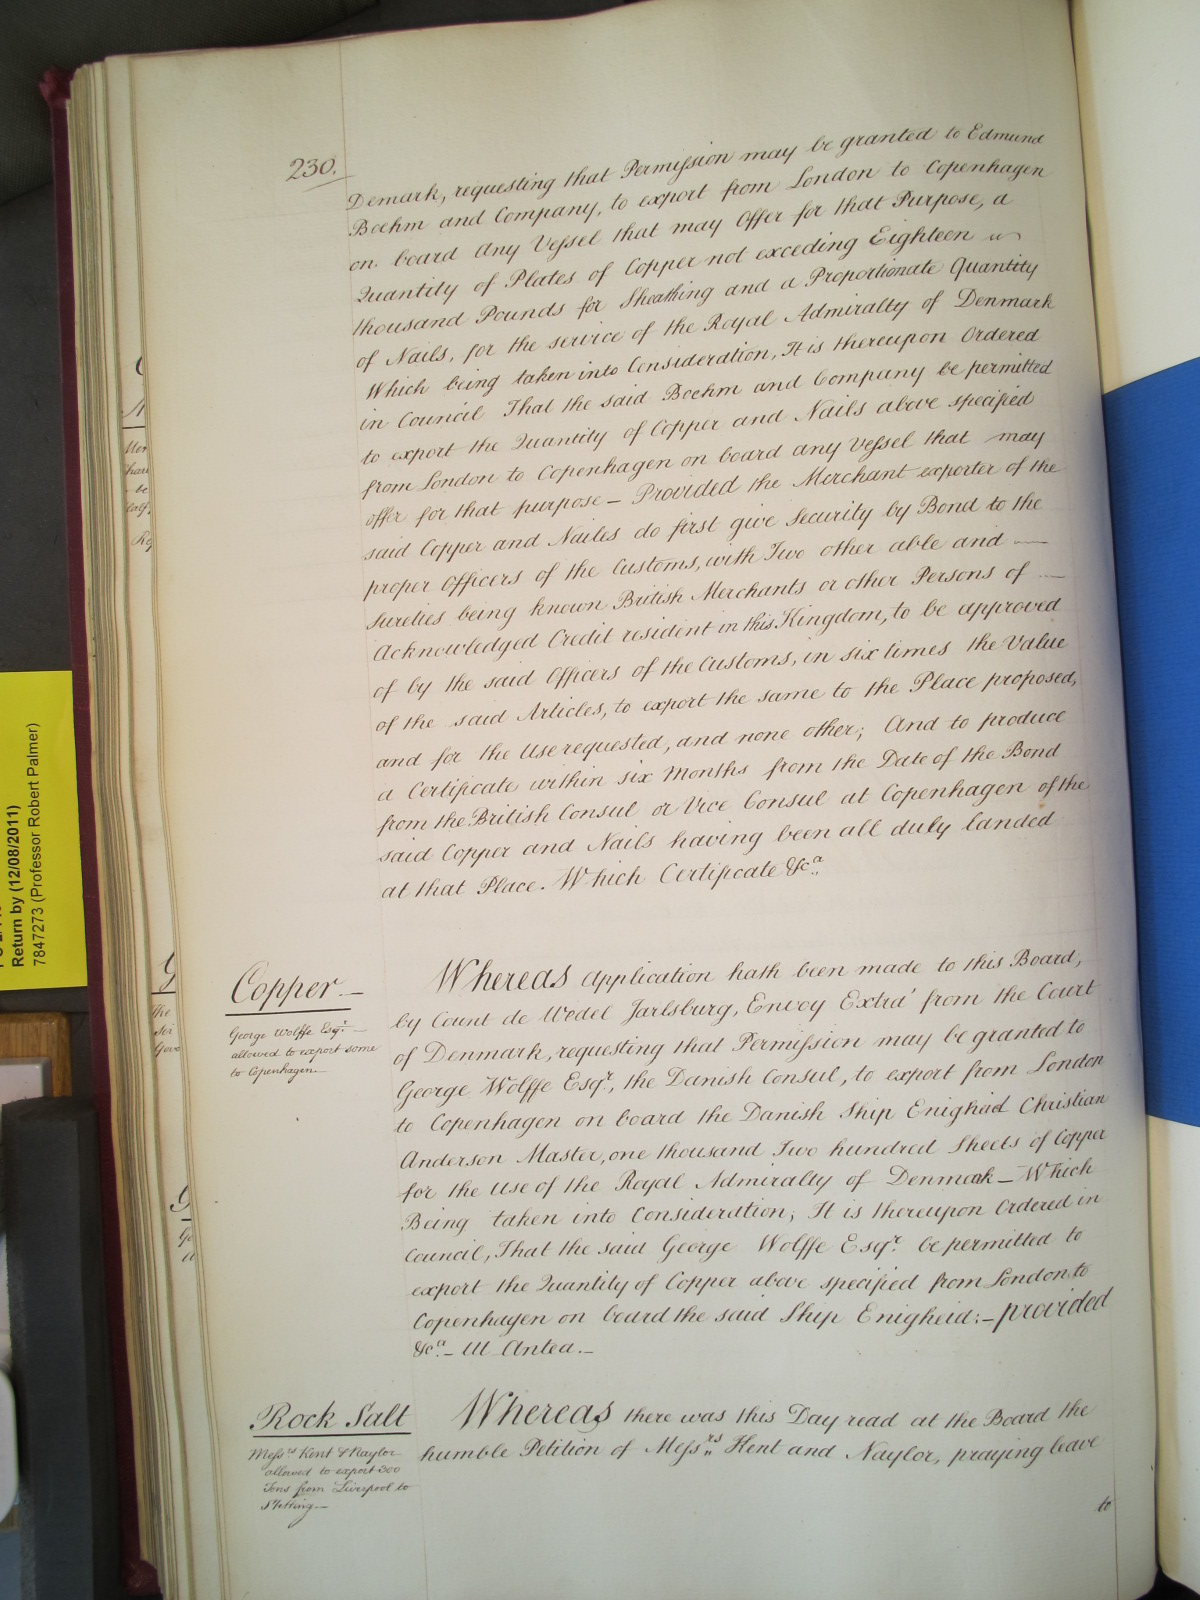 230.
Demark, requesting that Permission may be granted to Edmund
Boehm and Company, to export from London to Copenhagen
on board any Vessel that may Offer for that Purpose, a
Quantity of Plates of Copper not exceding Eighteen
thousand Pounds for Sheathing and a Proportionate Quantity
of Nails, for the service of the Royal Admiralty of Denmark
Which being taken into Consideration, It is thereupon Ordered
in Council That the said Boehm and Company be permitted
to export the Quantity of Copper and Nails above specified
from London to Copenhagen on board any Vessel that may
offer for that purpose – Provided the Merchant exporter of the
said Copper and Nailes do first give Security by Bond to the
proper Officers of the Customs, with Two other able and —
sureties being known British Merchants or other Persons of —
Acknowledged Credit resident in this Kingdom, to be approved
of by the said Officers of the Customs, in six times the Value
of the said Articles, to export the same to the Place proposed,
and for the Use requested, and none other; And to produce
a Certificate within six Months from the Date of the Bond
from the British Consul or Vice Consul at Copenhagen of the
said Copper and Nails having been all duly landed
at that Place. Which Certificate &ca.
Copper.—
George Wolffe Esqr. —
allowed to export some
to Copenhagen.—
Whereas Application hath been made to this Board,
by Count de Wedel Jarlsburg, Envoy Extra' from the Court
of Denmark, requesting that Permission may be granted to
George Wolffe Esqr., the Danish Consul, to export from London
to Copenhagen on board the Danish Ship Enigheid Christian
Anderson Master, one thousand Two hundred Sheets of Copper
for the use of the Royal Admiralty of Denmark – Which
Being taken into Consideration; It is thereupon Ordered in
Council, That the said George Wolffe Esqr. be permitted to
export the Quantity of Copper above specified from London to
Copenhagen on board the said Ship Enigheid:– provided
&ca.– Ut Antea.–
Rock Salt
Messrs Kent & Naylor
allowed to export 300
Tons from Liverpool to
Stetting—
Whereas there was this Day read at the Board the
humble Petition of Messrs Hent and Naylor, praying leave
to
Return by (12/08/2011)
7847273 (Professor Robert Palmer)